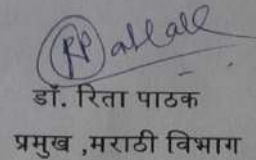 डॉ. रिता पाठक
प्रमुख ,मराठी विभाग